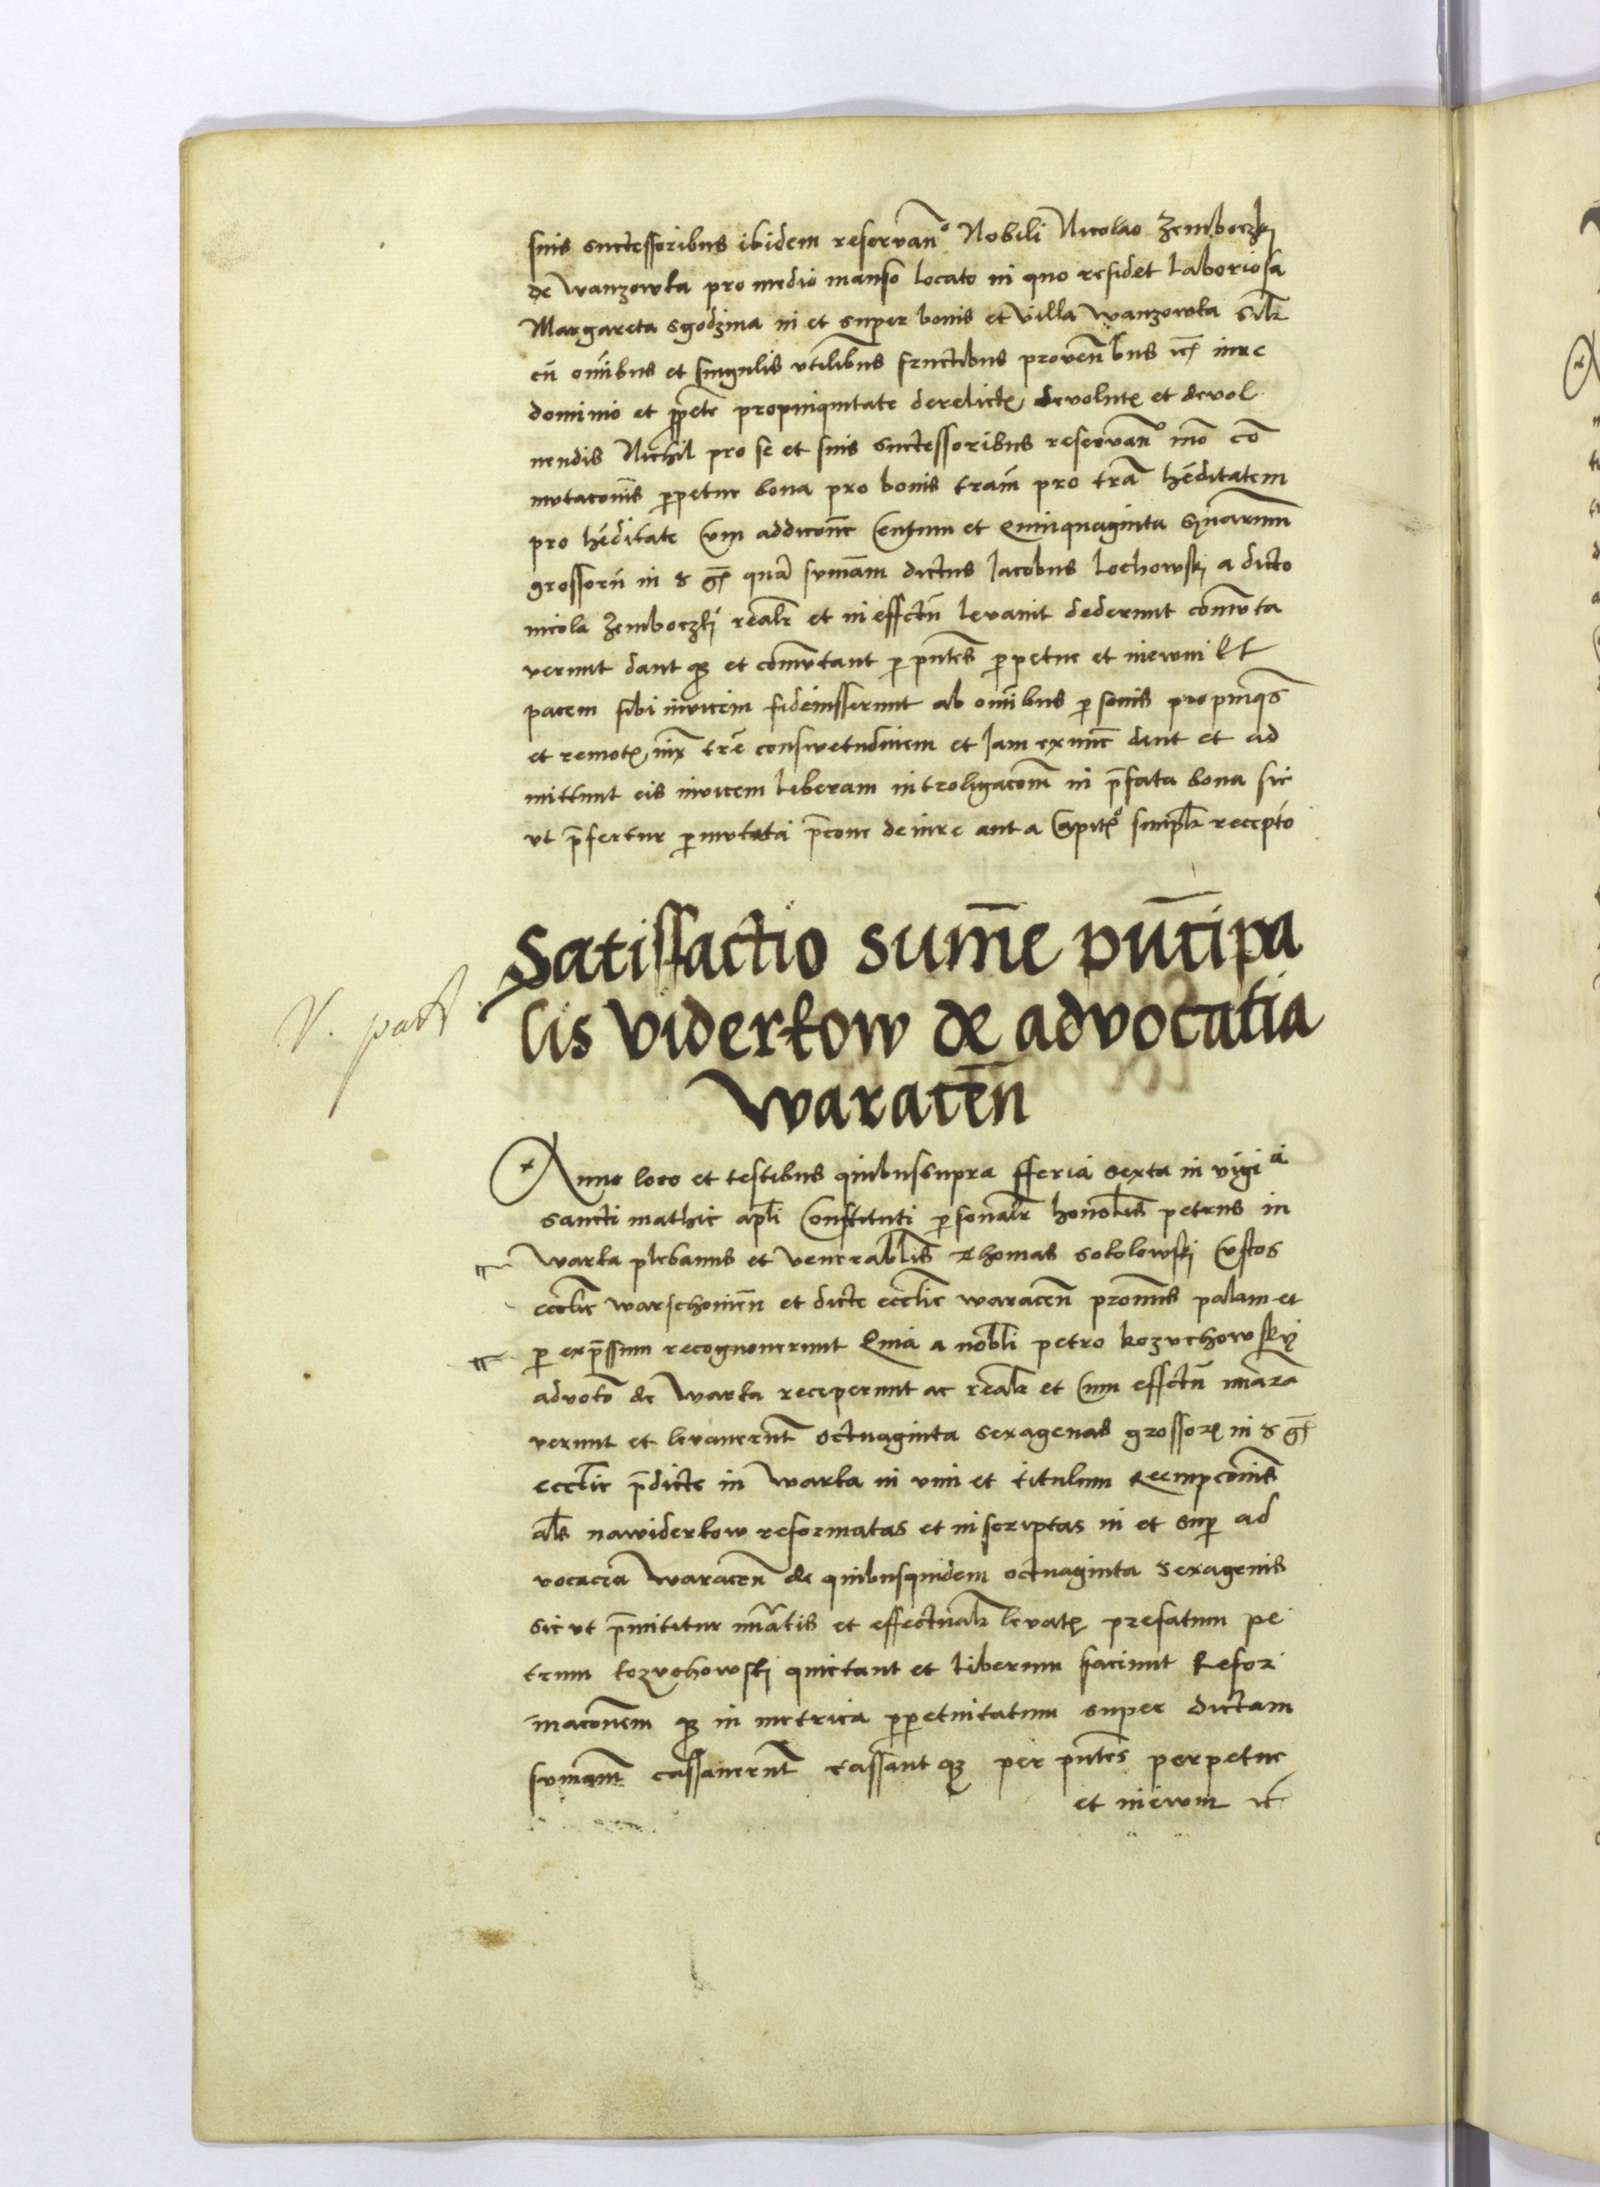 suis successoribus ibidem reservan° Nobili Nicolao Zemboczki
de Wanzowka pro medio manso locato in quo residet laboriosa
Margareta sgodzina in et super bonis et villa Wanzowka silr
cū omībus et singulis vtilībus fructibus provenn bus iure
dominio et ppete propinquitate derelictꝫ devolutꝫ et devol
uendis Nichil pro se et suis successoribus reservan° mō cō
mutacoīs ꝑpetue bona pro bonis trām pro trā hēditatem
pro hēditate Cum addicone Centum et Quinquaginta Mrarum
grossorū in quā sumām dictus Jacobus Lochowski a dicto
nicola Zemboczki realr et in effctū levavit dederunt comuta
verunt dant qꝫ et comutant ꝑ pntes ꝑpetue et inewm Et
pacem sibi invicem fideiusserunt ab omībus ꝑsonis propinqs
et remotꝫ iux trē conswetudinem et Jam exnunc dant et ad
mittunt eis invicem liberam introligacom in p̄fata bona sic
ut p̄fertur ꝑmutata p̄cone de iure ant a Capitꝫ° simplr recepto
V. part
Satisfactio sum̄e pn̄cipa
lis viderkow de advocatia
waracēn
Anno loco et testibus quibussupra fferia sexta in vigi a
sancti mathie apli Constituti ꝑsonalr honoblis petrus in
Warka plebanus et venerablis Thomas Sokolowski Custos
ecclie warschouien et dicte ecclie waracen pronus palam et
ꝑ exp̄ssum recognouerunt Quia a nobli petro kozuchowsky
advoto de Warka receperunt ac realr et Cum effctū nūara
verunt et levauerunt octuaginta sexagenas grossorꝫ in
ecclie p̄dicte in Warka in vim et titulum Reempconis
als nawiderkow reformatas et inscriptas in et sup ad
vocacia Waracen de quibusquidem octuaginta sexagenis
sic ut p̄mititur nūatis et effectualr levatꝫ prefatum pe
trum kozuchowski quictant et liberum faciunt Refor
maconem qꝫ in metrica ꝑpetuitatum super dictam
sumam cassauerunt cassant qꝫ per pntes perpetue
et inewm